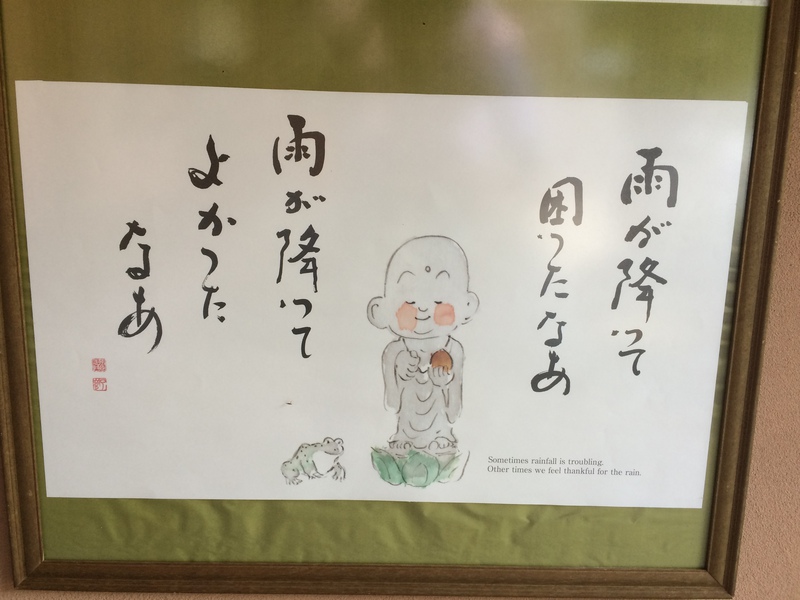 雨が降って
困ったなあ
雨が降って
よかった
なあ
Sometimes rainfall is troubling.
Other times we feel thankful for the rain.